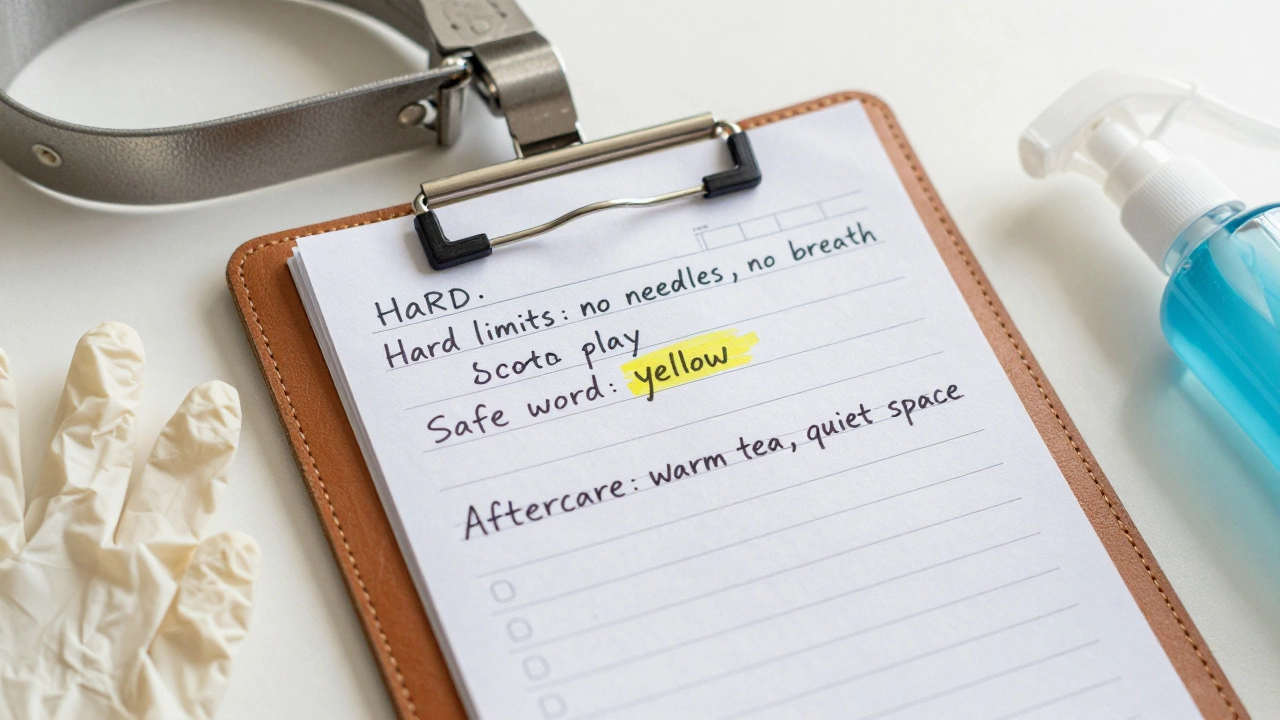 HaRD.
Hard limits: no needles, no breath
Scota play
Safe word: yellow
Aftercare: warm tea, quiet space